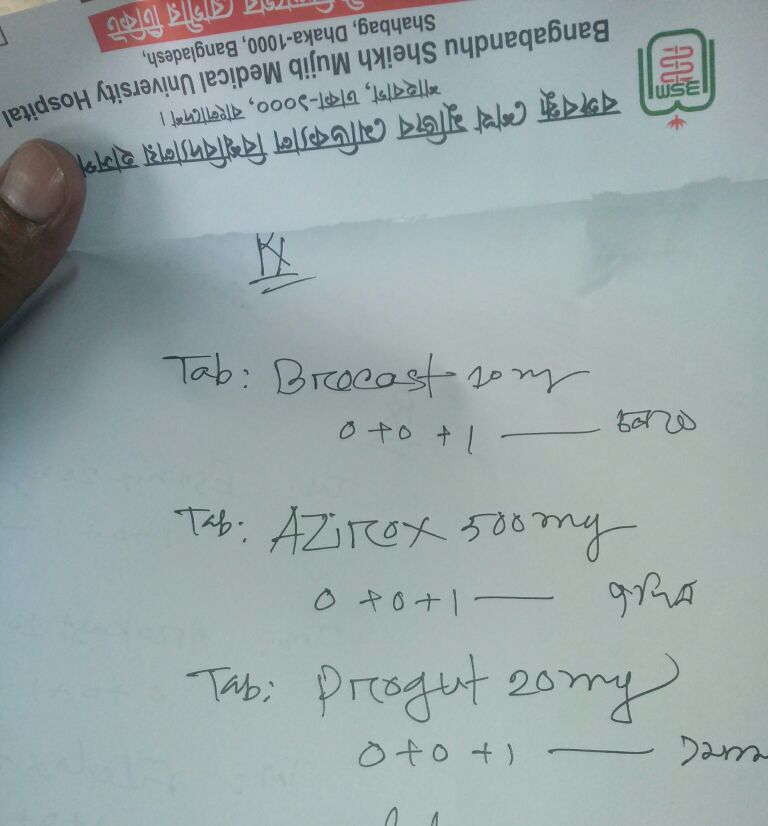 বঙ্গবন্ধু শেখ মুজিব মেডিক্যাল বিশ্ববিদ্যালয় হাসপা
শাহবাগ, ঢাকা-১০০০, বাংলাদেশ।
Bangabandhu Sheikh Mujib Medical University Hospital
Shahbag, Dhaka-1000, Bangladesh,
রোগীর টিকিট
Rx
Tab: Brocast 10 mg
0 + 0 + 1 — চলবে
Tab: AZirox 500 mg
0 + 0 + 1 — ৭দিন
Tab: Progut 20 mg
0 + 0 + 1 —